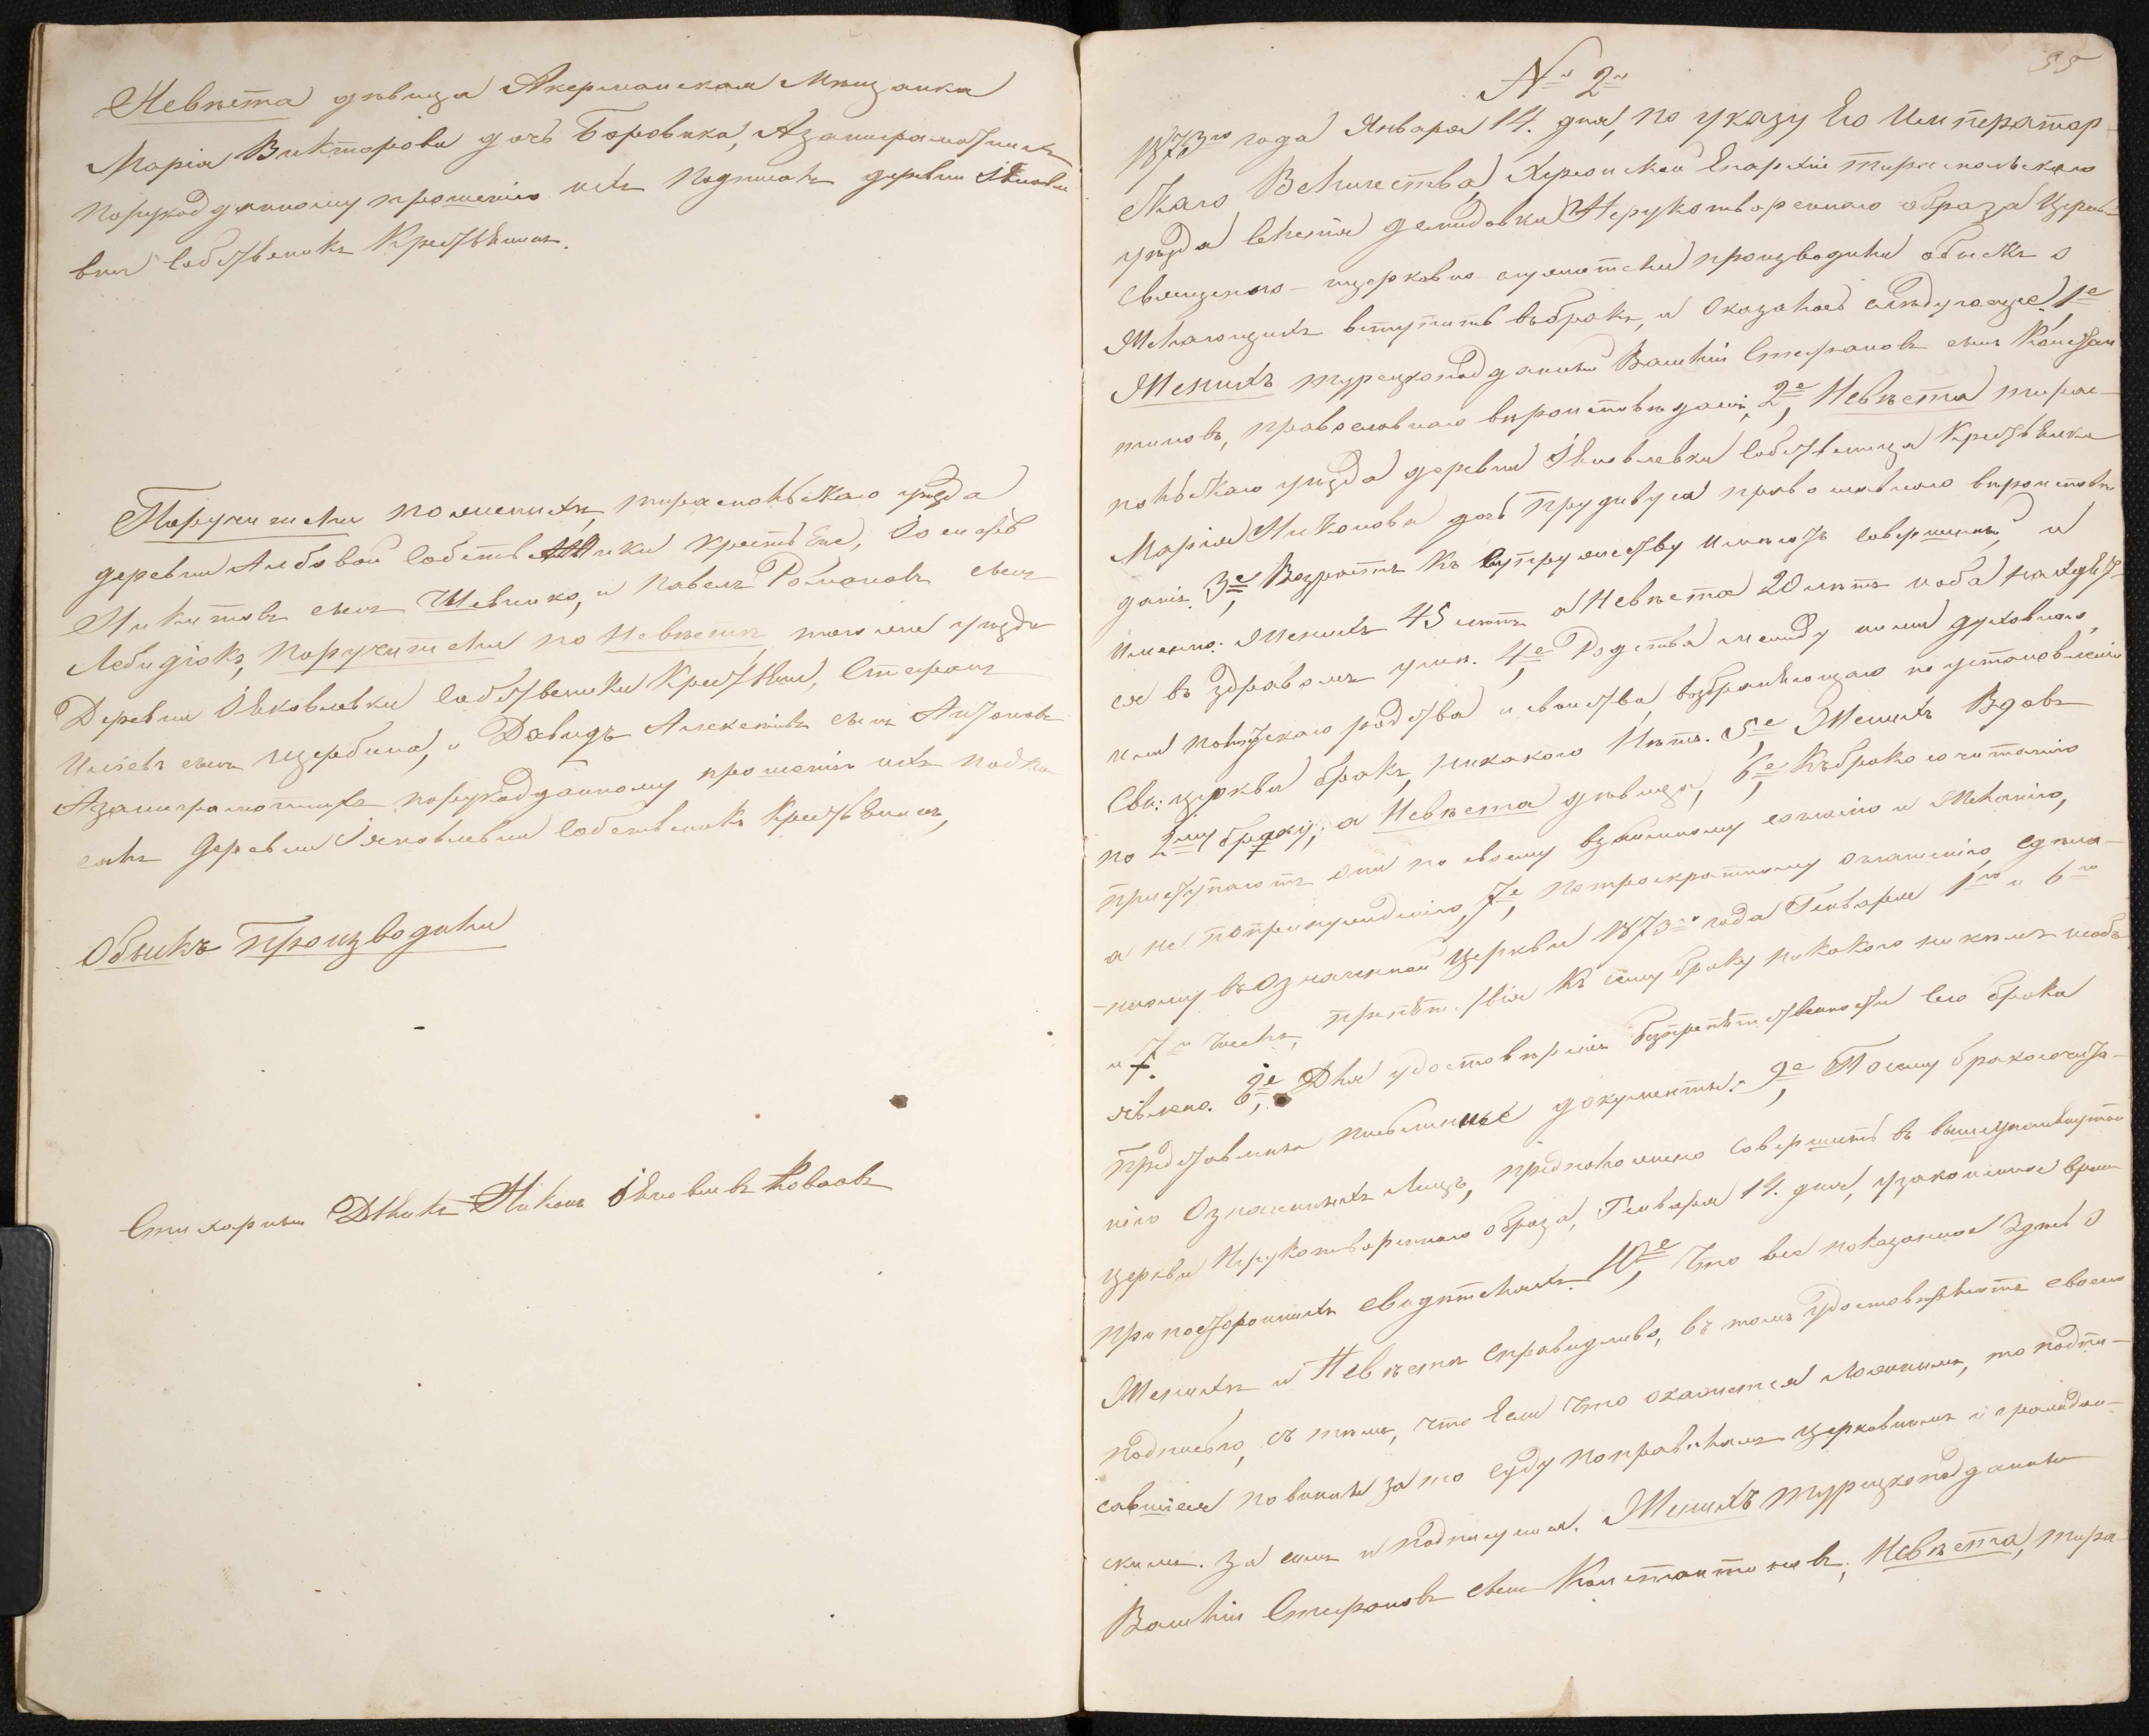 Невѣста дѣвица Акерманская Мѣщанка
Марія Викторова дочь Боровика, Азанираматныхъ
порукод данному прошенію ихъ подписалъ деревни Яковле
вки собственикъ Крестьянинъ.
Поручители пожениху, тираспольскаго уѣзда
деревни Любовой собственики крестьяне, Іосифъ
Никитовъ сынъ Шевченко, и Павелъ Романовъ сынъ
Лебидіокъ, поручители по Невѣстѣ, того же уѣзда
Деревни Яковлевки собственики Крестьяне, Стефанъ
сынъ Щербина, и Давидъ Алексеевъ сынъ Антоновъ
Азанираматныхъ порукодданному прошенію ихъ подпи
салъ Деревни Яковлевки собственикъ Крестьянинъ,
Обыскъ Производили
Стихарный Дьякъ Никонъ Яковлевъ
55
№ 2й
1873го года Января 14. дня, по указу Его Император-
скаго Величества, Херсонской Епархіи тираспольскаго
уѣзда селенія демидовки Нерукотвореннаго образа Церкви
Священно-церковно служители производили обыскъ о
Желающихъ вступить въ бракъ, и оказалось слѣдующее 1е
Женихъ турецкоподданный Василій Стефановъ сынъ Констан
тиновъ, православнаго вѣроисповѣданія, 2е, Невѣста тирас-
польскаго уѣзда деревни Яковлевки собственица Крестьянка
Марія Никонова дочь православнаго вѣроисповѣ
данія. 3е, Возрастъ къ супружеству имѣютъ совершенный и
именно: Женихъ 45 лѣтъ а Невѣста 20 лѣтъ и оба находят-
ся въ здравомъ умѣ. 4е Родства между ними духовнаго,
или плотскаго родства и свойства, возбраняющаго по установленію
Свя: церкви бракъ, никакого Нѣтъ. 5е, Женихъ Вдовъ
по 2му браку, а Невѣста дѣвица, 6е, Къ бракосочитанію
приступаютъ они по своему взаимному согласію и Желанію,
а не попринужденію, 7е, по троекратному оглашенію, сдѣла-
нному въ означенной церкви 1873го года Генваря 1го и 6го
и 7. числъ, препятствія къ сему браку никакого никѣмъ необъ
явлено. 8е, Для удостовѣренія безпрепятственности сего брака
представлены письменные документы. 9е Посему бракосочита-
нію означенныхъ Лицъ, предположено совершить въ вышеупомянутой
церкви Нерукотвореннаго образа, Генваря 14. дня, узаконенное время
при постороннихъ свидѣтеляхъ. 10е, Что все показанное здѣсь о
Женихѣ и Невѣстѣ справедливо, въ томъ удостовѣряютъ своею
подписью, съ тѣмъ, что Если что окажется ложнымъ, то подпи-
савшіеся повинны за то суду по правиламъ церковнымъ и граждан-
скимъ. За симъ и подпишемся. Женихъ турецкоподданный
Василій Стефановъ сынъ Константиновъ, Невѣста, тира